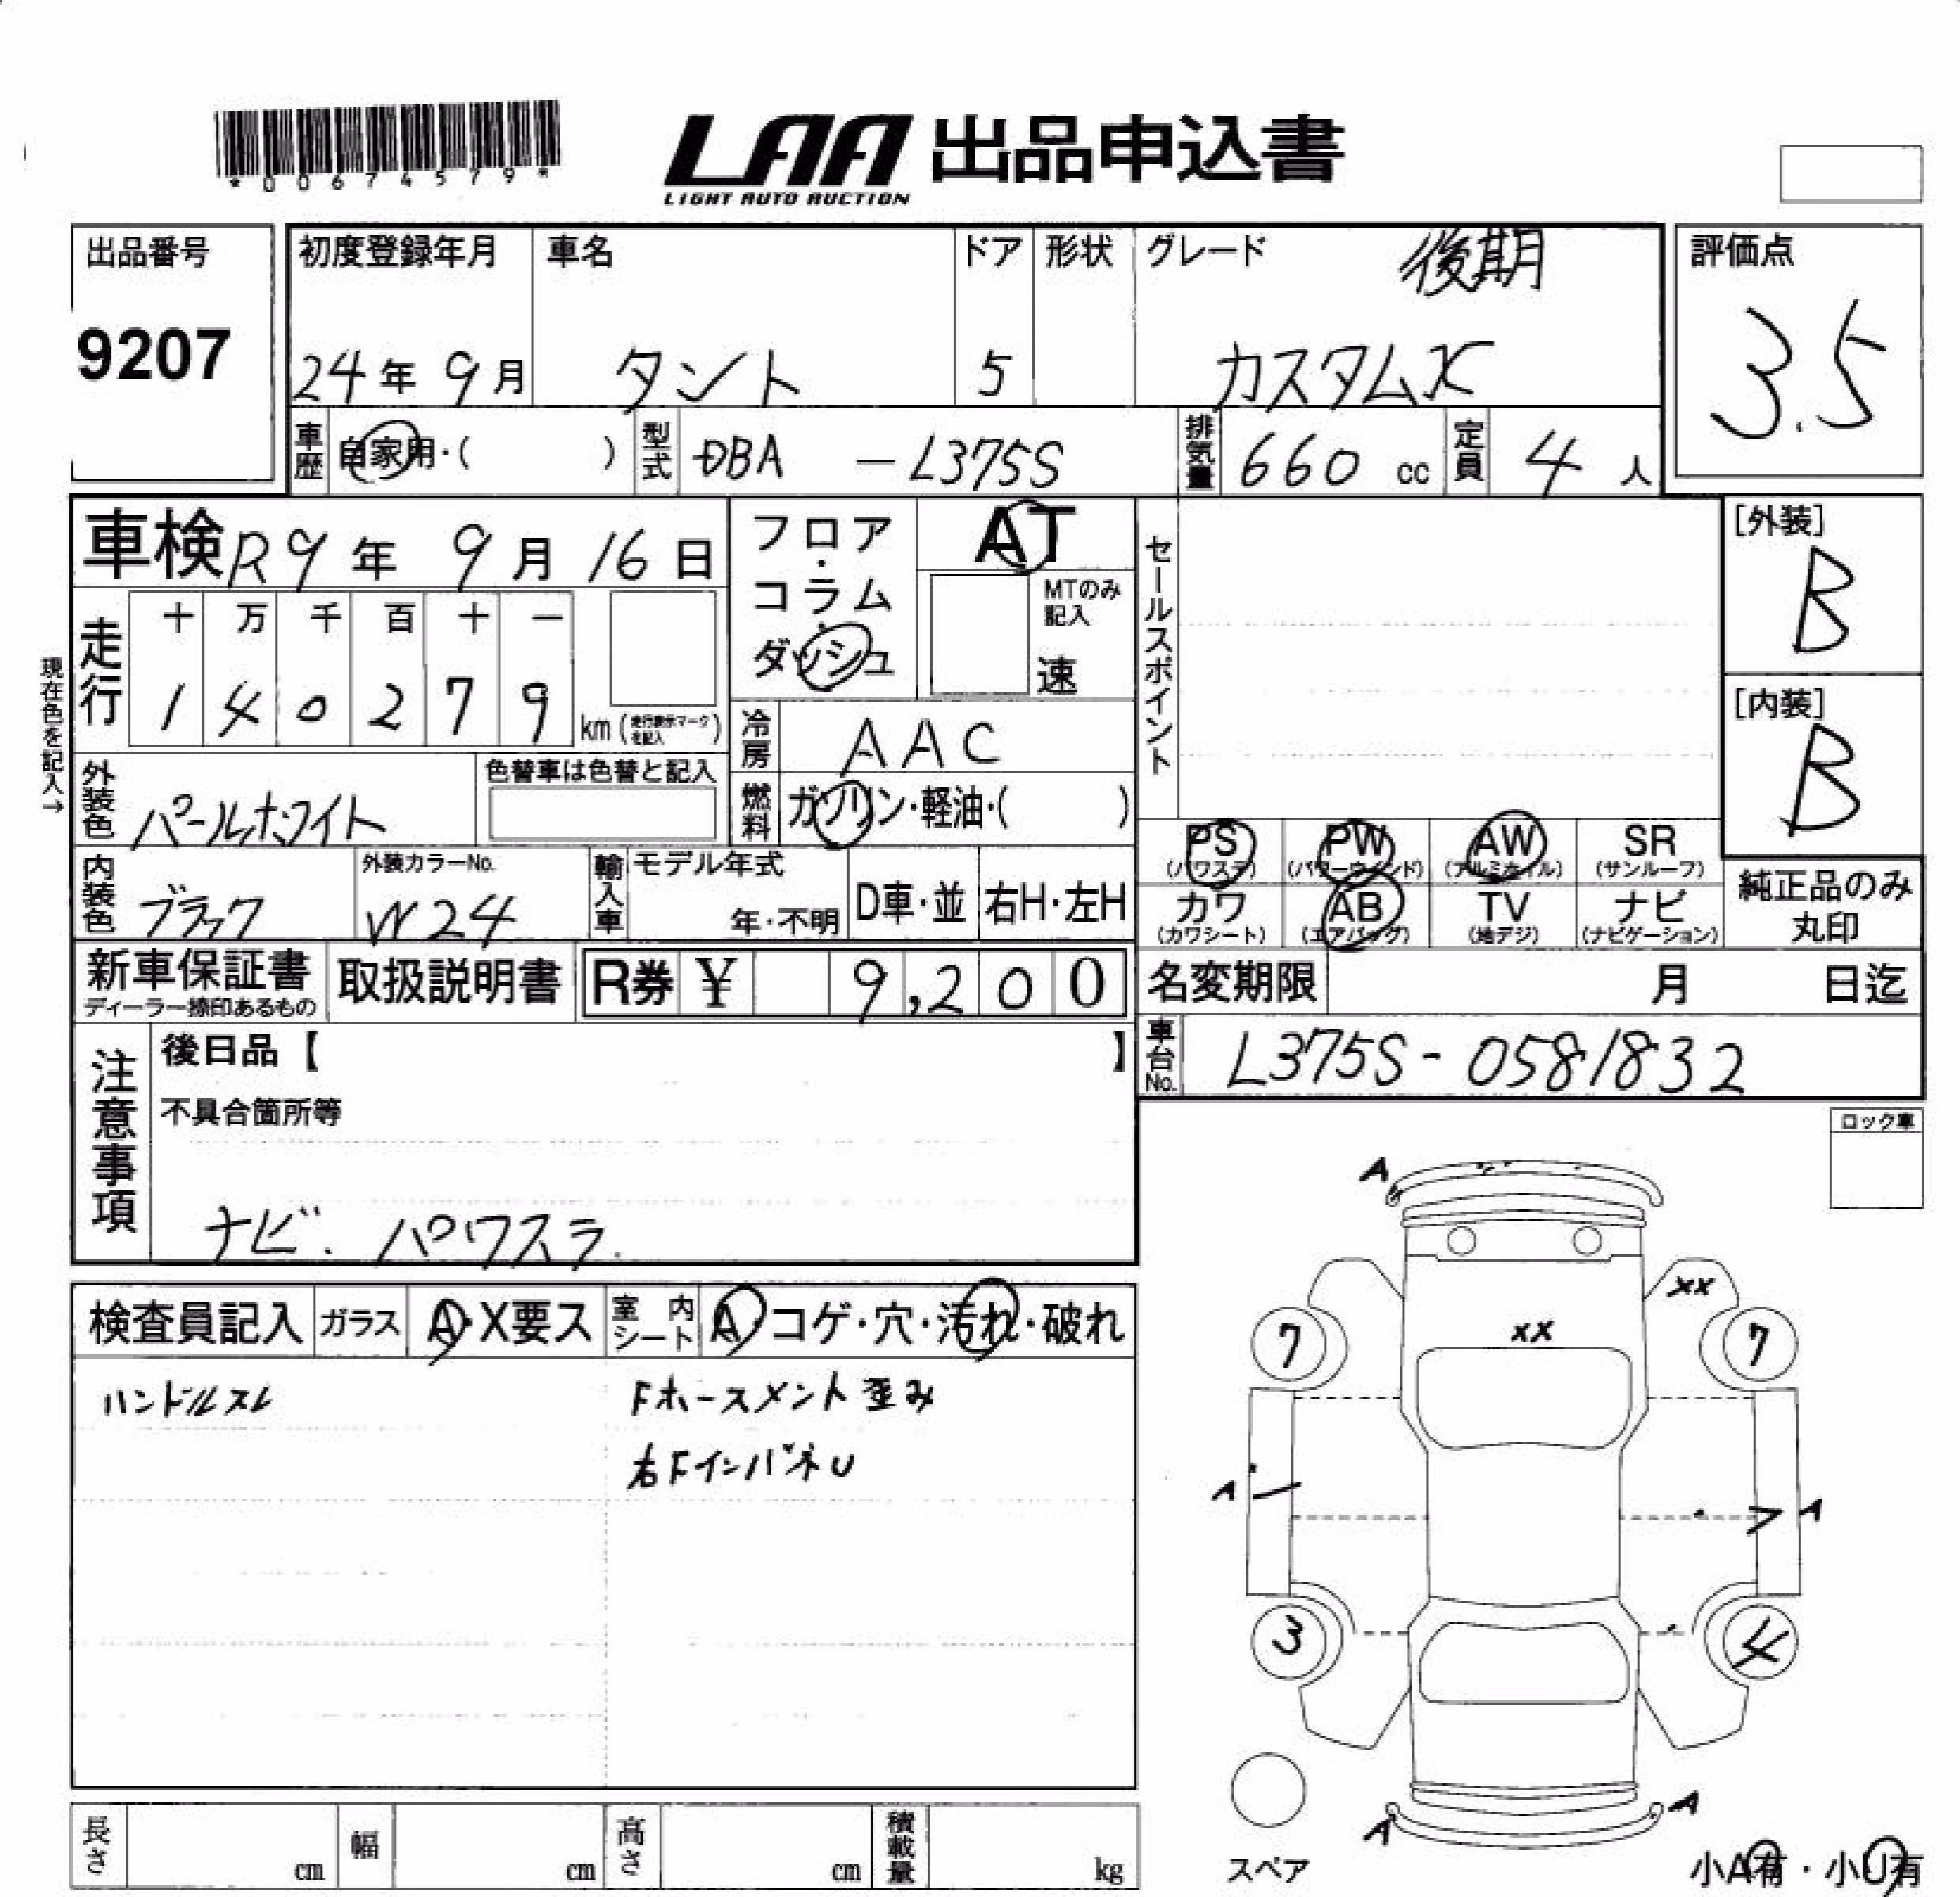 *00674579*
LAA 出品申込書
LIGHT AUTO AUCTION
出品番号
9207
初度登録年月
24年 9月
車名
タント
ドア
5
形状
グレード 後期
カスタムX
評価点
3.5
車歴 自家用・( )
型式 DBA - L375S
排気量 660 cc
定員 4 人
車検 R9年 9月 16日
フロア・コラム・ダッシュ
AT
MTのみ記入
速
セールスポイント
[外装]
B
[内装]
B
走行
十 万 千 百 十 一
1 4 0 2 7 9 km (走行表示マークを記入)
現在色を記入→
冷房 AAC
燃料 ガソリン・軽油・( )
外装色 パールホワイト
色替車は色替と記入
内装色 ブラック
外装カラーNo.
W24
輸入車 モデル年式
年・不明
D車・並 右H・左H
PS (パワステ)
PW (パワーウインド)
AW (アルミホイル)
SR (サンルーフ)
カワ (カワシート)
AB (エアバッグ)
TV (地デジ)
ナビ (ナビゲーション)
純正品のみ
丸印
新車保証書
ディーラー捺印あるもの
取扱説明書
R券 ¥ 9,200
名変期限 月 日迄
車台No. L375S-0581832
注意事項
後日品【 】
不具合箇所等
ナビ. パワスラ.
ロック車
検査員記入 ガラス A・X要ス 室内シート A コゲ・穴・汚れ・破れ
ハンドルスレ
Fホースメント歪み
右FインパネU
A
XX
XX
7
7
A
A
3
4
A
A
スペア
小A有・小U有
長さ cm
幅 cm
高さ cm
積載量 kg